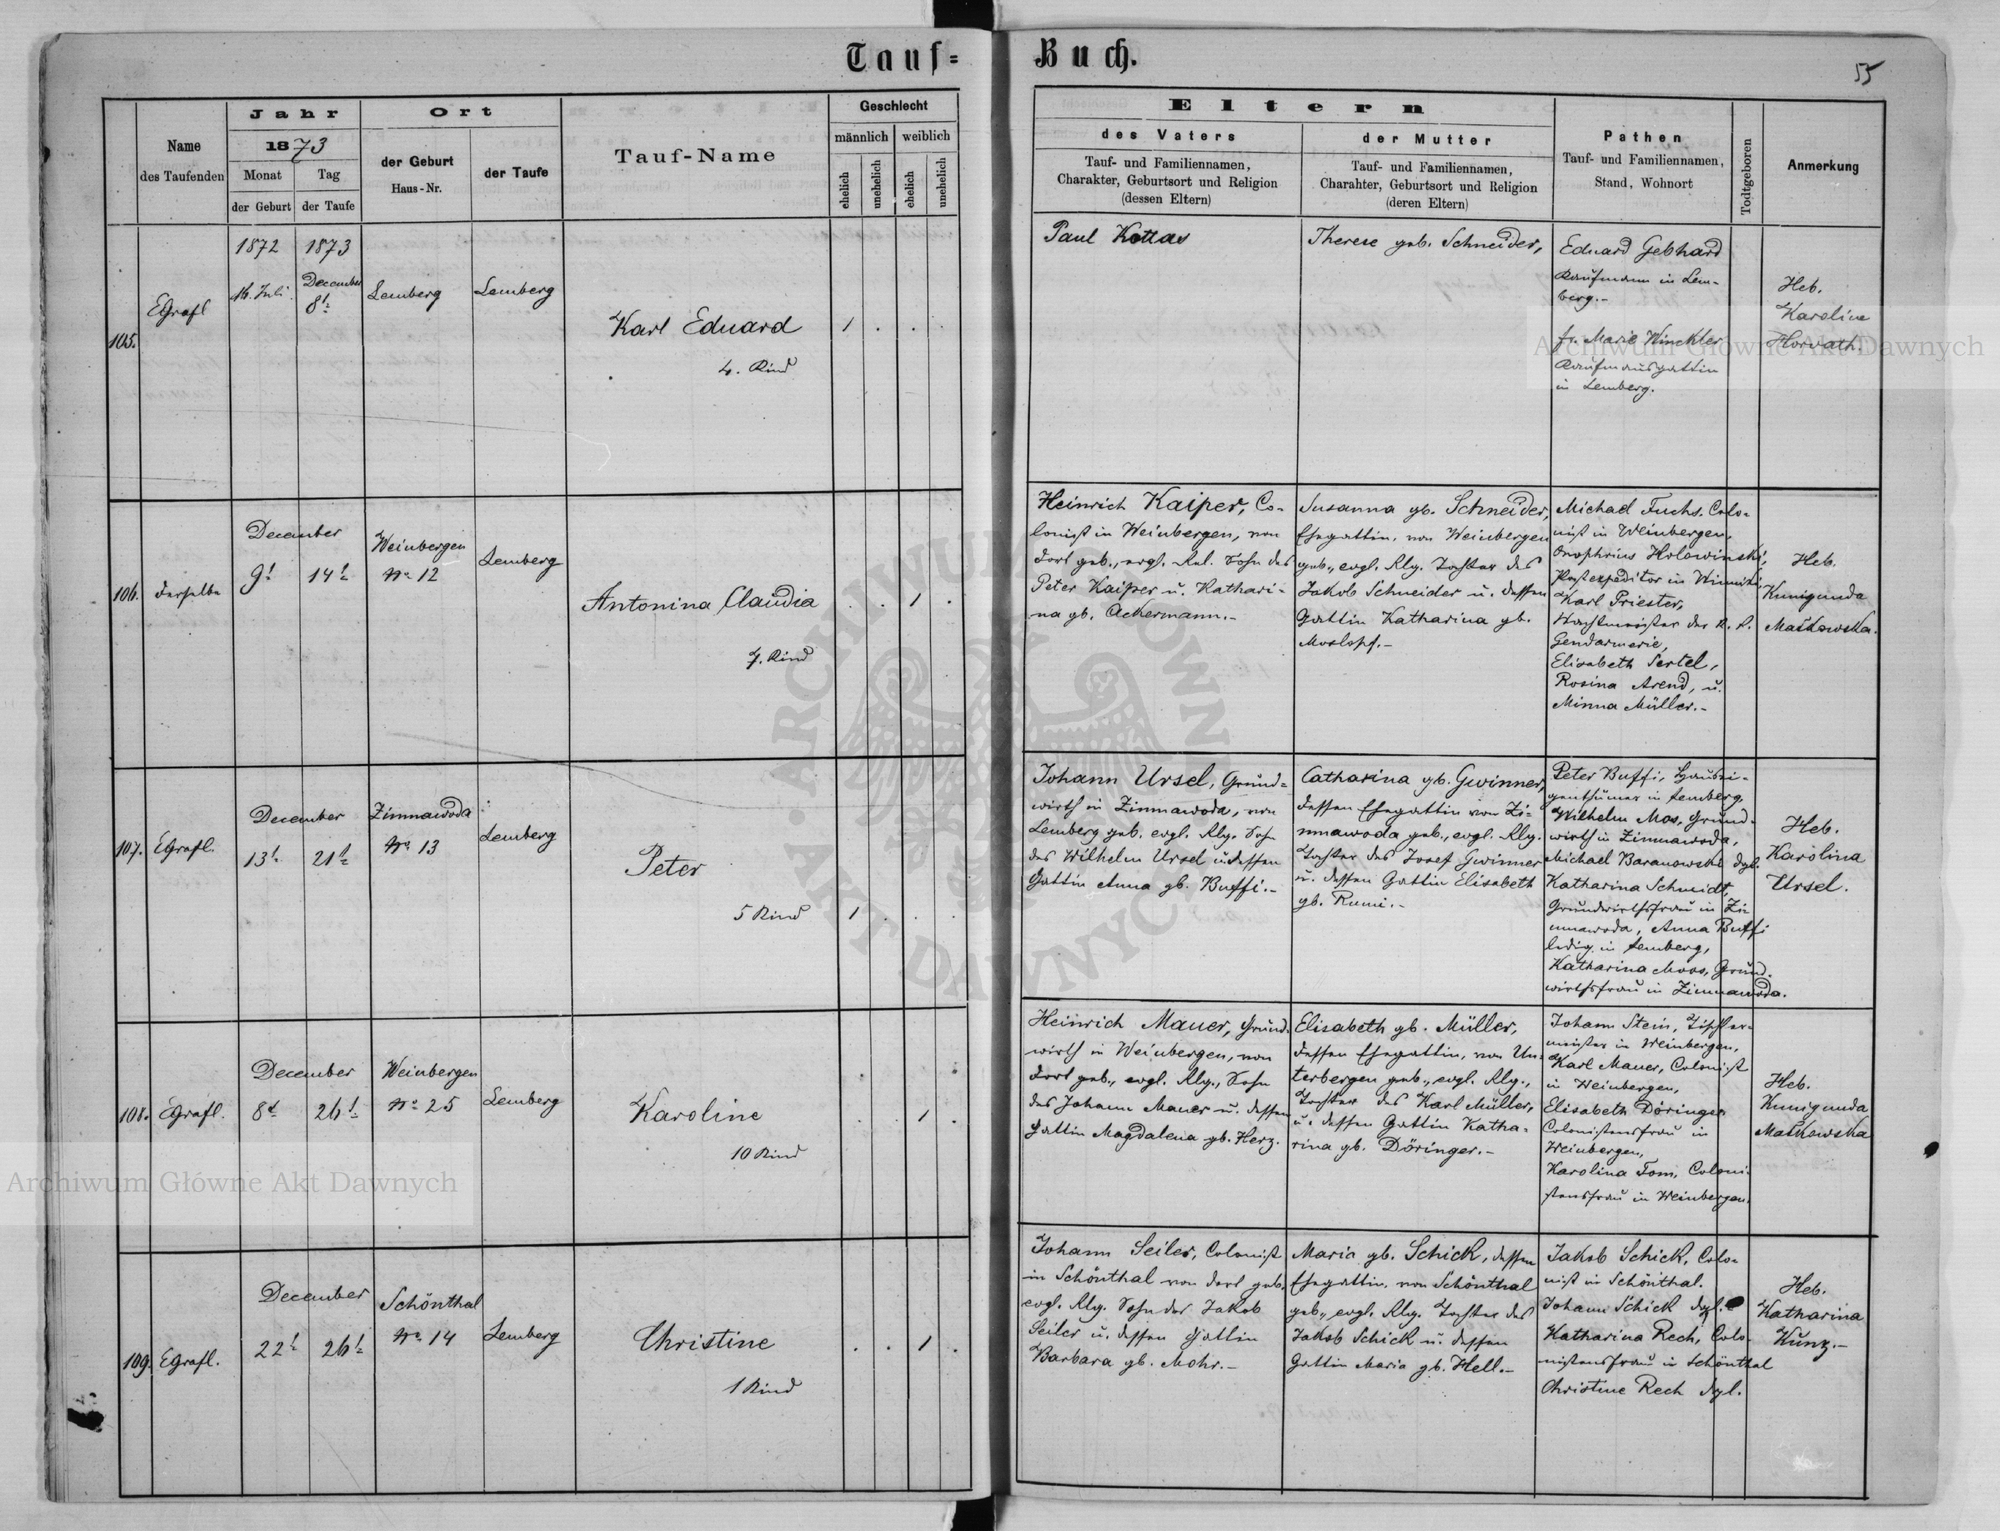 Tauf=
Buch.
55
Name
des Taufenden
Jahr
1873
Monat
Tag
der Geburt
der Taufe
Ort
der Geburt
Haus-Nr.
der Taufe
Tauf-Name
Geschlecht
männlich
weiblich
ehelich
unehelich
ehelich
unehelich
Eltern
des Vaters
Tauf- und Familiennamen,
Charakter, Geburtsort und Religion
(dessen Eltern)
der Mutter
Tauf- und Familiennamen,
Charahter, Geburtsort und Religion
(deren Eltern)
Pathen
Tauf- und Familiennamen,
Stand, Wohnort
Todtgeboren
Anmerkung
105.
EGrafl
1872
16. Juli
1873
December
8t
Lemberg
Lemberg
Karl Eduard
4. Kind
1 . . .
Paul Kottas
Therese geb. Schneider,
Eduard Gebhard
Kaufmann in Lem-
berg.-
fr. Marie Winckler
Kaufmansgattin
in Lemberg.
Heb.
Karoline
Horvath.
106.
derselbe
December
9t
14t
Weinbergen
No 12
Lemberg
Antonina Claudia
7. Kind
. . 1 .
Heinrich Kaiper, Co-
lonist in Weinbergen, von
dort geb., evgl. Rel. Sohn des
Peter Kaiper u. Kathari-
na gb. Ackermann.-
Susanna gb. Schneider,
Ehegattin, von Weinbergen
geb., evgl. Rlg. Tochter des
Jakob Schneider u. dessen
Gattin Katharina gb.
Moslopf.-
Michael Fuchs, Colo-
nist in Weinbergen,
Onophrius Holowinski,
Postexpeditor in Winniki,
Karl Priester,
Wachtmeister der k. k.
Gendarmerie,
Elisabeth Sertel,
Rosina Arend, u.
Minna Müller.-
Heb.
Kunigunda
Maćkowska.
107.
EGrafl.
December
13t
21t
Zimnawoda
No 13
Lemberg
Peter
5 Kind
1 . . .
Johann Ursel, Grund=
wirth in Zimnawoda, von
Lemberg geb. evgl. Rlg. Sohn
des Wilhelm Ursel u dessen
Gattin Anna gb. Buffi.-
Catharina gb. Gwinner,
dessen Ehegattin von Zi-
mnawoda geb., evgl. Rlg.
Tochter des Josef Gwinner
u. dessen Gattin Elisabeth
gb. Rumi.-
Peter Buffi, Hausei-
genthümer in Lemberg,
Wilhelm Mos, Grund-
wirth in Zimnawoda,
Michael Baranowski dgl.
Katharina Schmidt,
Grundwirthsfrau in Zi-
mnawoda, Anna Buffi
ledig in Lemberg,
Katharina Moos, Grund-
wirthsfrau in Zimnawoda.
Heb.
Karolina
Ursel.
108.
EGrafl.
December
8t
26t
Weinbergen
No 25
Lemberg
Karoline
10 Kind
. . 1 .
Heinrich Mauer, Grund-
wirth in Weinbergen, von
dort geb., evgl. Rlg., Sohn
des Johann Mauer u. dessen
Gattin Magdalena gb. Herz.
Elisabeth gb. Müller,
dessen Ehegattin, von Un-
terbergen geb., evgl. Rlg.,
Tochter des Karl Müller,
u. dessen Gattin Katha-
rina gb. Döringer.-
Johann Stein, Tischler-
meister in Weinbergen,
Karl Mauer, Colonist
in Weinbergen,
Elisabeth Döringer
Colonistensfrau in
Weinbergen,
Karolina Tom, Coloni-
stensfrau in Weinbergen.
Heb.
Kunigunda
Maćkowska
109.
EGrafl.
December
22t
26t
Schönthal
No 14
Lemberg
Christine
1 Kind
. . 1 .
Johann Seiler, Colonist
in Schönthal von dort geb.
evgl. Rlg. Sohn des Jakob
Seiler u. dessen Gattin
Barbara gb. Mohr.-
Maria gb. Schick, dessen
Ehegattin, von Schönthal
geb., evgl. Rlg. Tochter des
Jakob Schick u. dessen
Gattin Maria gb. Hell.-
Jakob Schick, Colo-
nist in Schönthal.
Johann Schick dgl.
Katharina Rech, Colo-
nistensfrau in Schönthal
Christine Rech dgl.
Heb.
Katharina
Kunz.-
Archiwum Główne Akt Dawnych
Archiwum Główne Akt Dawnych
ARCHIWUM GŁÓWNE
AKT DAWNYCH